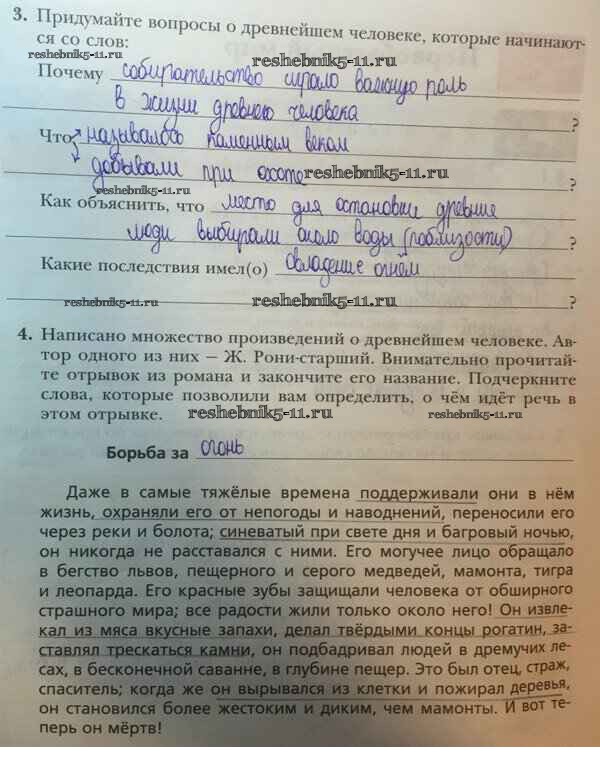 3. Придумайте вопросы о древнейшем человеке, которые начинают-
ся со слов:
reshebnik5-11.ru
reshebnik5-11.ru
Почему собирательство играло важную роль
в жизни древнего человека
?
Что называлось каменным веком
добывали при охоте
reshebnik5-11.ru
?
reshebnik5-11.ru
Как объяснить, что место для остановки древние
люди выбирали около воды (поблизости) ?
Какие последствия имел(о) овладение огнём
reshebnik5-11.ru
reshebnik5-11.ru
?
4. Написано множество произведений о древнейшем человеке. Ав-
тор одного из них – Ж. Рони-старший. Внимательно прочитай-
те отрывок из романа и закончите его название. Подчеркните
слова, которые позволили вам определить, о чём идёт речь в
этом отрывке.
reshebnik5-11.ru
reshebnik5-11.ru
Борьба за огонь
Даже в самые тяжёлые времена поддерживали они в нём
жизнь, охраняли его от непогоды и наводнений, переносили его
через реки и болота; синеватый при свете дня и багровый ночью,
он никогда не расставался с ними. Его могучее лицо обращало
в бегство львов, пещерного и серого медведей, мамонта, тигра
и леопарда. Его красные зубы защищали человека от обширного
страшного мира; все радости жили только около него! Он извле-
кал из мяса вкусные запахи, делал твёрдыми концы рогатин, за-
ставлял трескаться камни, он подбадривал людей в дремучих ле-
сах, в бесконечной саванне, в глубине пещер. Это был отец, страж,
спаситель; когда же он вырывался из клетки и пожирал деревья,
он становился более жестоким и диким, чем мамонты. И вот те-
перь он мёртв!